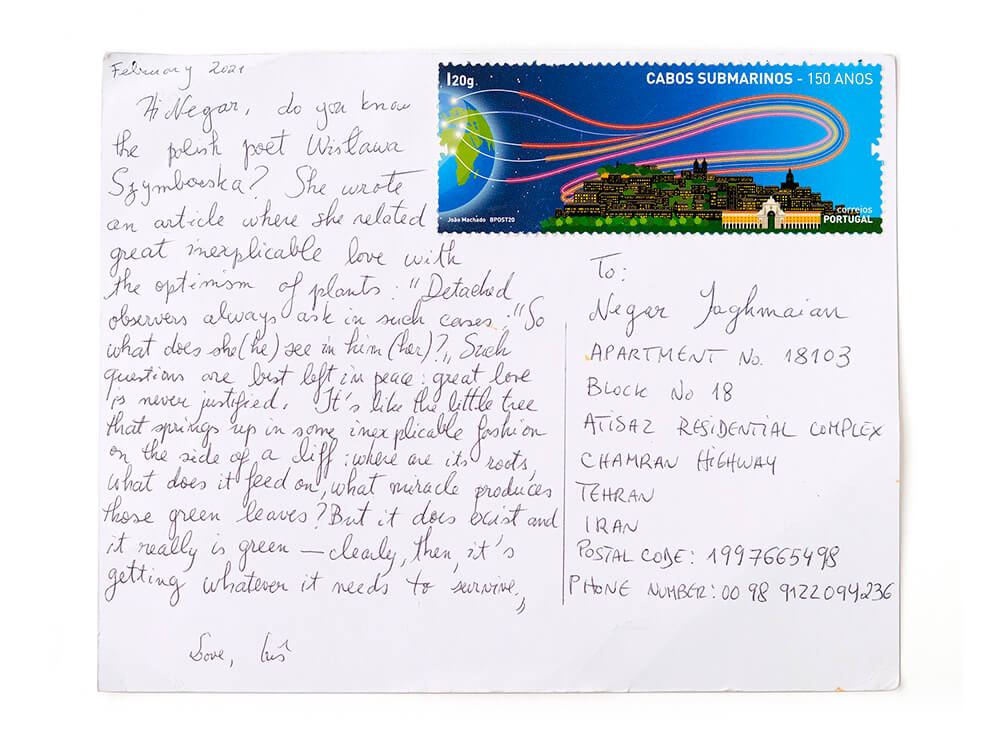 February 2021
Hi Negar, do you know
the polish poet Wisława
Szymborska? She wrote
an article where she related
great inexplicable love with
the optimism of plants: "Detached
observers always ask in such cases: "So
what does she(he) see in him (her)?„ Such
questions are best left in peace: great love
is never justified. It's like the little tree
that springs up in some inexplicable fashion
on the side of a cliff: where are its roots,
what does it feed on, what miracle produces
those green leaves? But it does exist and
it really is green — clearly, then, it's
getting whatever it needs to survive„
Love,
I20g
CABOS SUBMARINOS - 150 ANOS
João Machado BPOST20
correios
PORTUGAL
To:
Negar Yaghmaian
APARTMENT No. 18103
BLOCK No 18
ATISAZ RESIDENTIAL COMPLEX
CHAMRAN HIGHWAY
TEHRAN
IRAN
POSTAL CODE: 1997665498
PHONE NUMBER: 00 98 9122094236